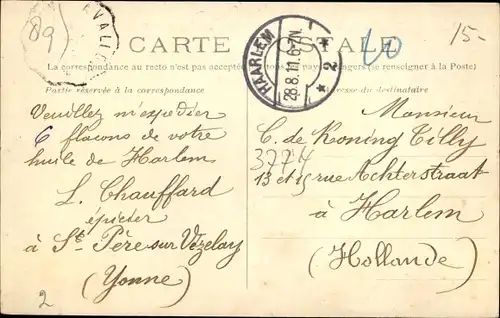 89
AVALL
CARTE POSTALE
HAARLEM
28.8.11.6-7N.
* 2 *
10
15-
La correspondance au recto n'est pas acceptée
ngers (se renseigner à la Poste)
Partie réservée à la correspondance
resse du destinataire
Veuillez m'expédier
6 flacons de votre
huile de Harlem
L. Chauffard
épicier
à St Père sur Vézelay
(Yonne)
2
Monsieur
C. de Koning Tilly
3774
13 et 15 rue Achterstraat
à Harlem
(Hollande)